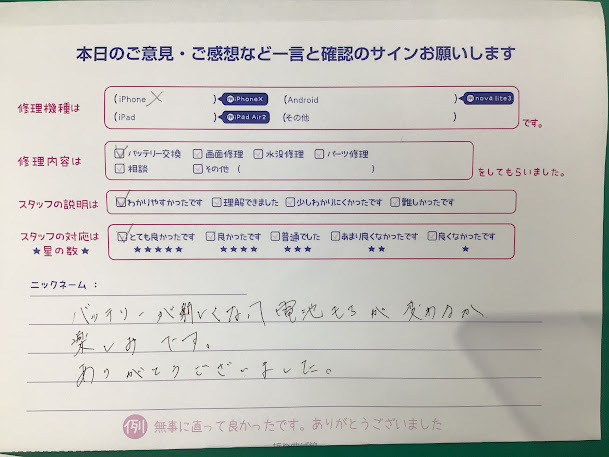 本日のご意見・ご感想など一言と確認のサインお願いします
修理機種は (iPhone X ) iPhoneX (Android ) nova lite3
(iPad ) iPad Air2 (その他 ) です。
修理内容は バッテリー交換 画面修理 水没修理 パーツ修理
相談 その他 ( ) をしてもらいました。
スタッフの説明は わかりやすかったです 理解できました 少しわかりにくかったです 難しかったです
スタッフの対応は とても良かったです 良かったです 普通でした あまり良くなかったです 良くなかったです
★星の数★ ★★★★★ ★★★★ ★★★ ★★ ★
ニックネーム：
バッテリーが新しくなって電池もちが変わるか
楽しみです。
ありがとうございました。
例 無事に直って良かったです。ありがとうございました